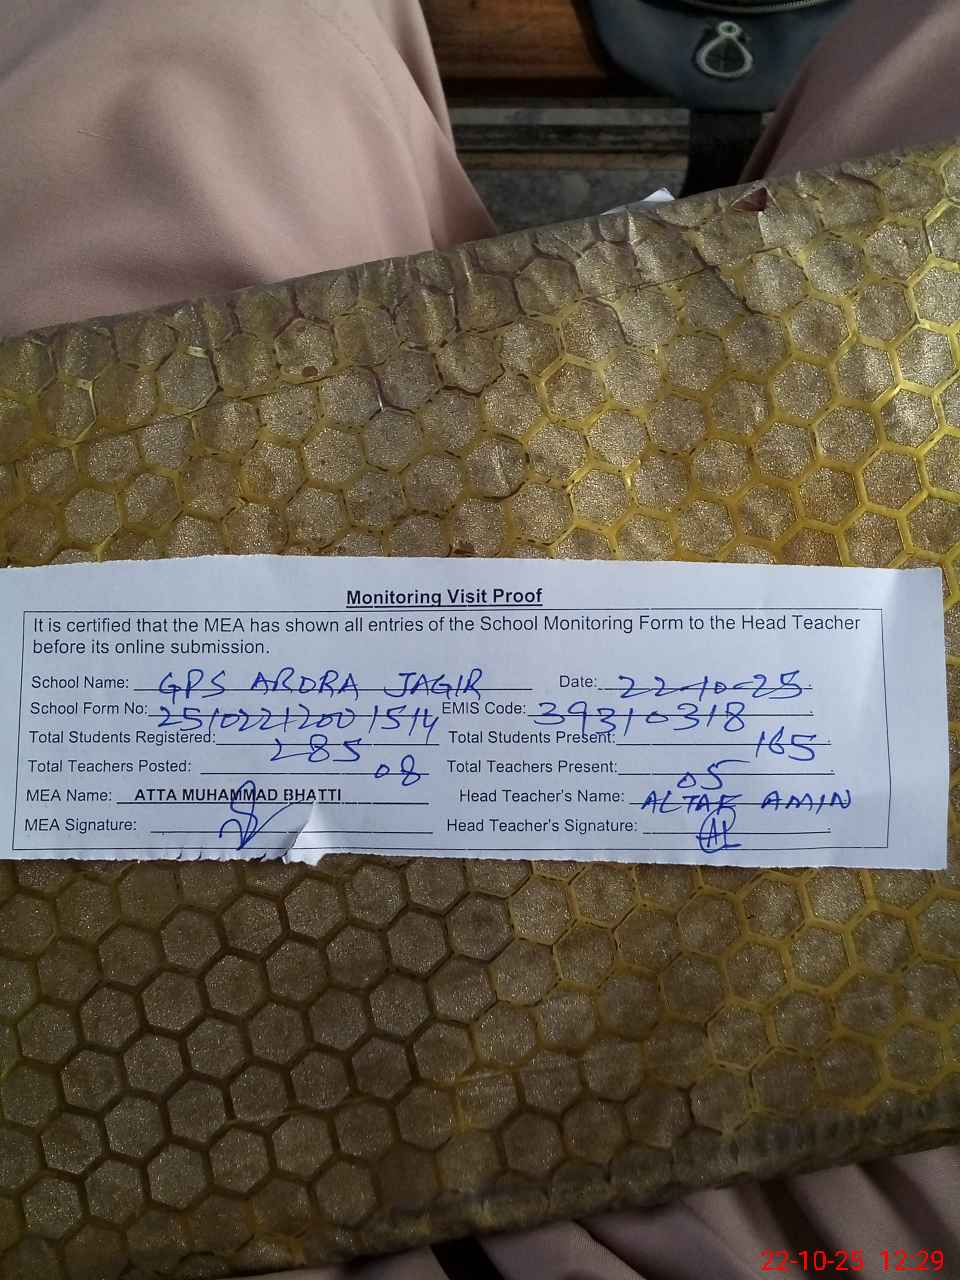 Monitoring Visit Proof
It is certified that the MEA has shown all entries of the School Monitoring Form to the Head Teacher
before its online submission.
School Name: GPS ARDRA JAGIR Date: 22-10-25
School Form No: 2510221200 1514 EMIS Code: 39310318
Total Students Registered: 285 Total Students Present: 165
Total Teachers Posted: 08 Total Teachers Present: 05
MEA Name: ATTA MUHAMMAD BHATTI Head Teacher's Name: ALTAF AMIN
MEA Signature: Head Teacher's Signature:
22-10-25 12:29